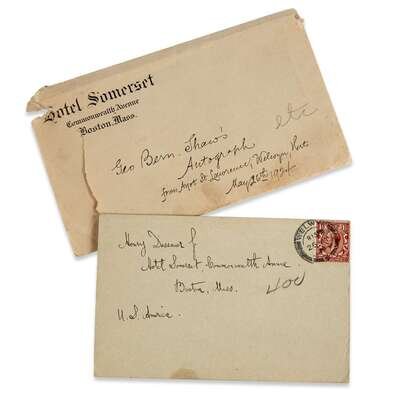 Hotel Somerset
Commonwealth Avenue
Boston, Mass.
etc
Geo Bern. Shaw's
Autograph
from Ayot St. Lawrence, Welwyn, Herts
May 26th 1924
Hotel Somerset, Commonwealth Avenue
Boston, Mass.
U.S. America.
WELW
26